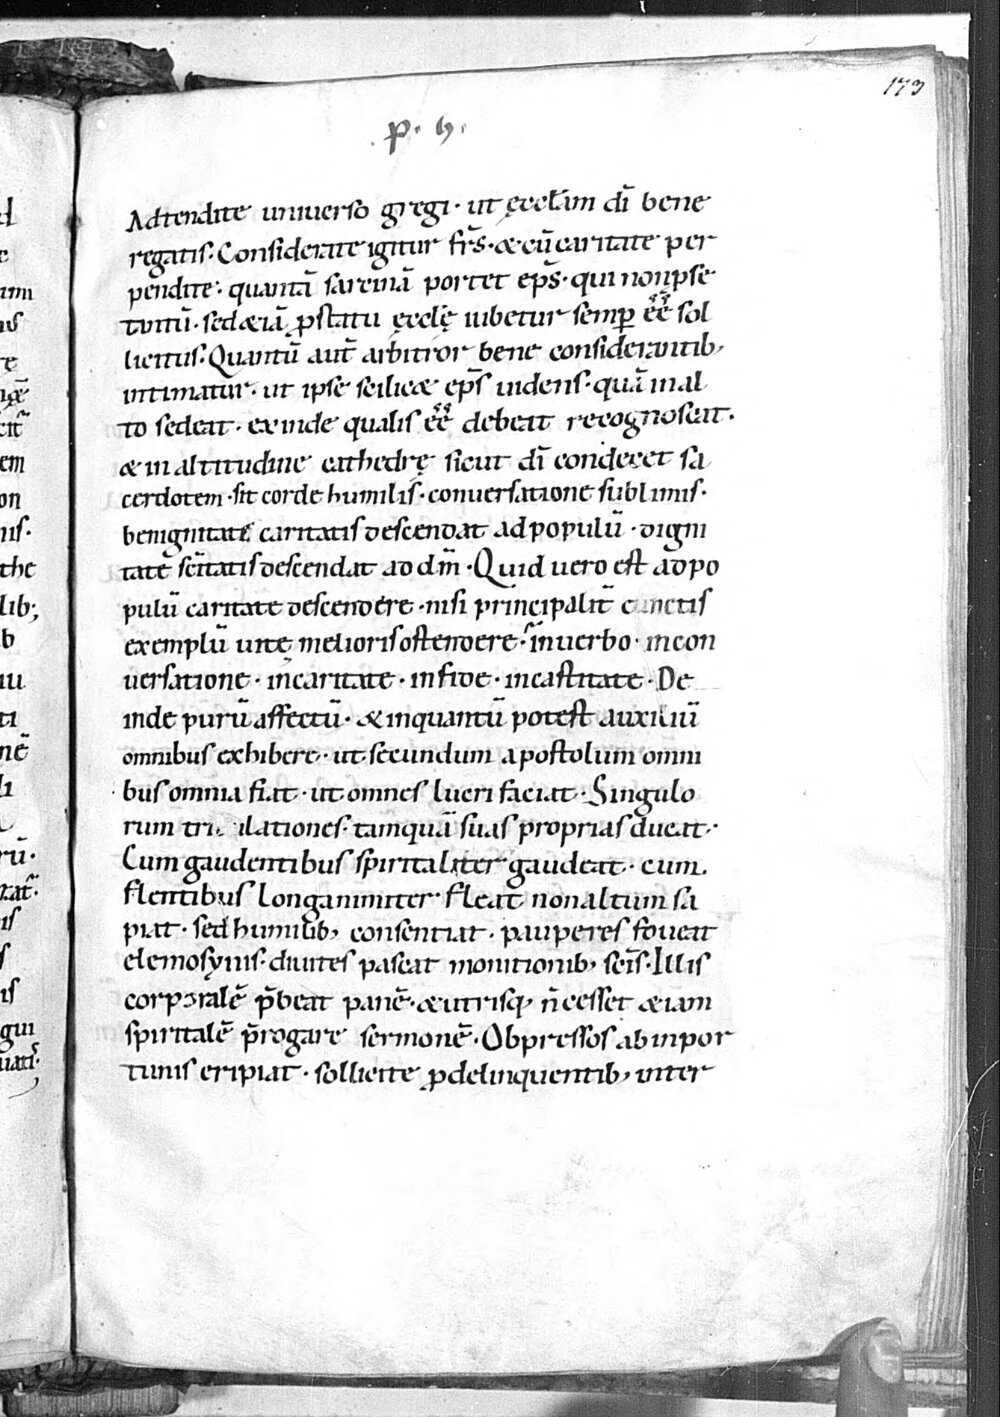 173
.p. h.
Adtendite uniuerso gregi · ut ęcclām dī bene
regatis. Considerate igitur fr̄s · & cū caritate per
pendite · quantā sarcinā portet ep̄s · qui non p se
tantū · sed &iā ꝓ statu ęcclę̄ iubetur semꝑ ēē sol
licitus. Quantū aut̄ arbitror bene considerantib;
intimatur · ut ipse scilic& ep̄s uidens · quā in al
to sedeat · exinde qualis ēē debeat recognoscat ·
& in altitudine cathedrę sicut dī condecet sa
cerdotem · sit corde humilis · conuersatione sublimis ·
benignitate caritatis descendat ad populū · digni
tate sc̄itatis descendat ad dm̄ · Quid uero est ad po
pulū caritate descendere · nisi principalit̄ cunctis
exemplū uitę melioris ostendere · in uerbo · in con
uersatione · in caritate · in fide · in castitate · De
inde purū affectū · & inquantū potest auxiliū
omnibus exhibere · ut secundum apostolum omni
bus omnia fiat · ut omnes lucri faciat · Singulo
rum tri ilationes · tamquā suas proprias ducat ·
Cum gaudentibus spiritaliter gaudeat · cum
flentibus longanimiter fleat non altum sa
piat · sed humilib; consentiat · pauperes foueat
elemosynis · diuites pascat monitionib; sc̄is · Illis
corporalē p̄beat panē · & utrisq; n̄ cesset &iam
spiritalē p̄rogare sermonē · Obpressos ab inpor
tunis eripiat · sollicite ꝓ delinquentib; inter